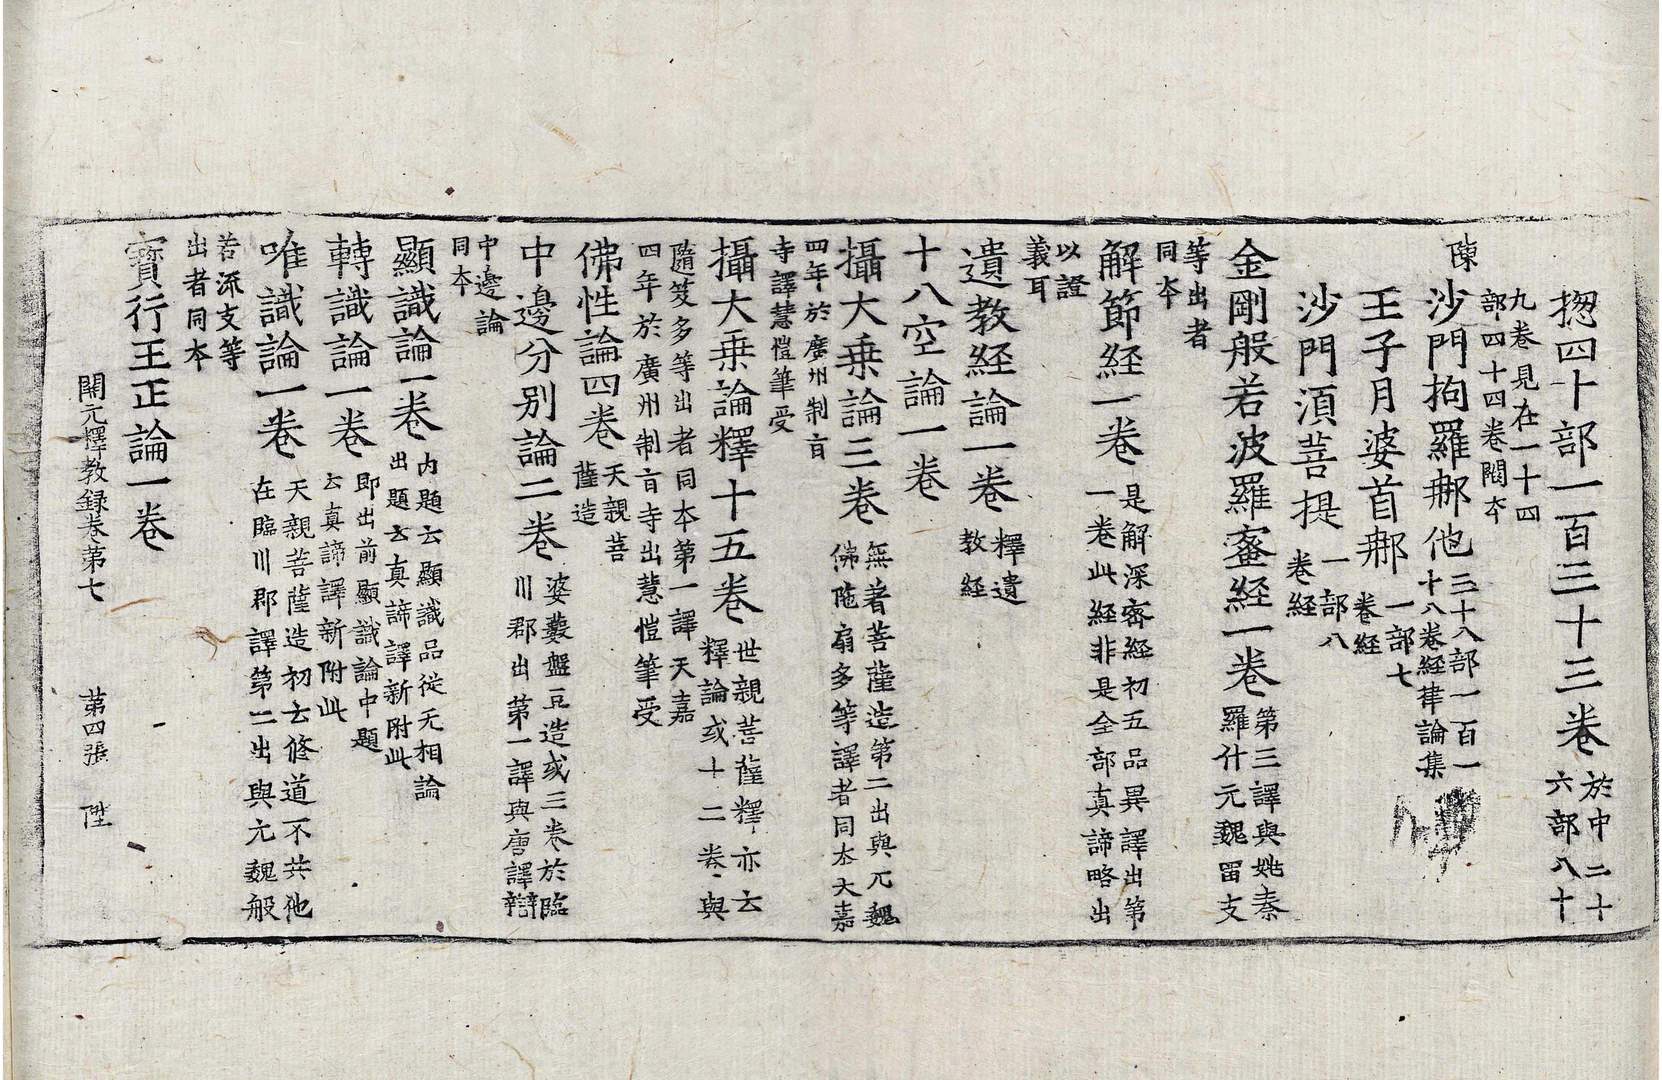 揔四十部一百三十三卷 於中二十
六部八十
九卷見在一十四
部四十四卷闕夲
陳
沙門拘羅那他 三十八部一百一
十八卷經律論集
王子月婆首那 一部七
卷經
沙門湏菩提 一部八
卷経
金剛般若波羅蜜経一卷 第三譯與姚秦
羅什元魏留支
等出者
同夲
解節経一卷 是解深密経初五品異譯出第
一卷此経非是全部真諦略出
以證
義耳
遺教経論一卷 釋遺
教経
十八空論一卷
攝大乗論三卷 無著菩薩造第二出與元魏
佛陁扇多等譯者同夲大嘉
四年於廣州制旨
寺譯慧愷筆受
攝大乗論釋十五卷 世親菩薩釋亦云
釋論或十二卷與
隨笈多等出者同夲第一譯天嘉
四年於廣州制旨寺出慧愷筆受
佛性論四卷 天親菩
薩造
中邊分别論二卷 婆藪盤豆造或三卷於臨
川郡出第一譯與唐譯辯
中邊論
同夲
顯識論一卷 内題云顯識品従无相論
出題云真諦譯新附此
轉識論一卷 即出前顯識論中題
云真諦譯新附此
唯識論一卷 天親菩薩造初云修道不共他
在臨川郡譯第二出與元魏般
若流支等
出者同夲
寳行王正論一卷
開元釋教録卷第七 第四張 陞